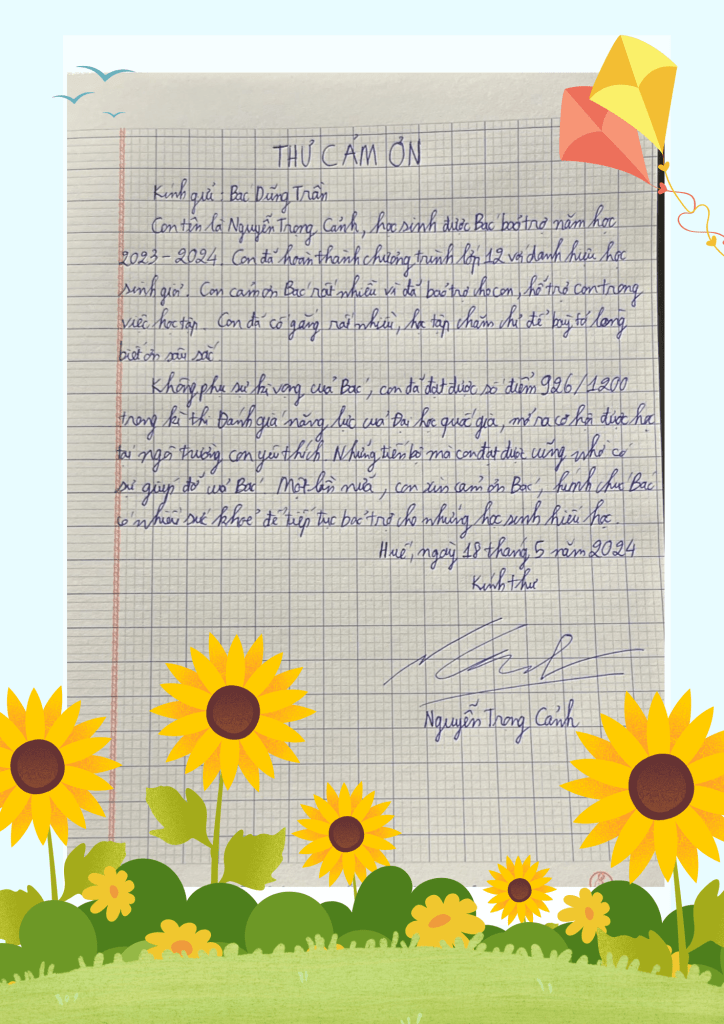 THƯ CẢM ƠN
Kính gửi : Bác Dũng Trần
Con tên là Nguyễn Trọng Cảnh, học sinh được Bác bảo trợ năm học
2023 - 2024. Con đã hoàn thành chương trình lớp 12 với danh hiệu học
sinh giỏi. Con cảm ơn Bác rất nhiều vì đã bảo trợ cho con, hỗ trợ con trong
việc học tập. Con đã cố gắng rất nhiều, học tập chăm chỉ để bày tỏ lòng
biết ơn sâu sắc
Không phụ sự kì vọng của Bác, con đã đạt được số điểm 926/1200
trong kì thi Đánh giá năng lực của Đại học quốc gia, mở ra cơ hội được học
tại ngôi trường con yêu thích. Những tiến bộ mà con đạt được cũng nhờ có
sự giúp đỡ của Bác. Một lần nữa, con xin cảm ơn Bác, kính chúc Bác
có nhiều sức khoẻ để tiếp tục bảo trợ cho những học sinh hiếu học.
Huế, ngày 18 tháng 5 năm 2024
Kính thư
Nguyễn Trọng Cảnh